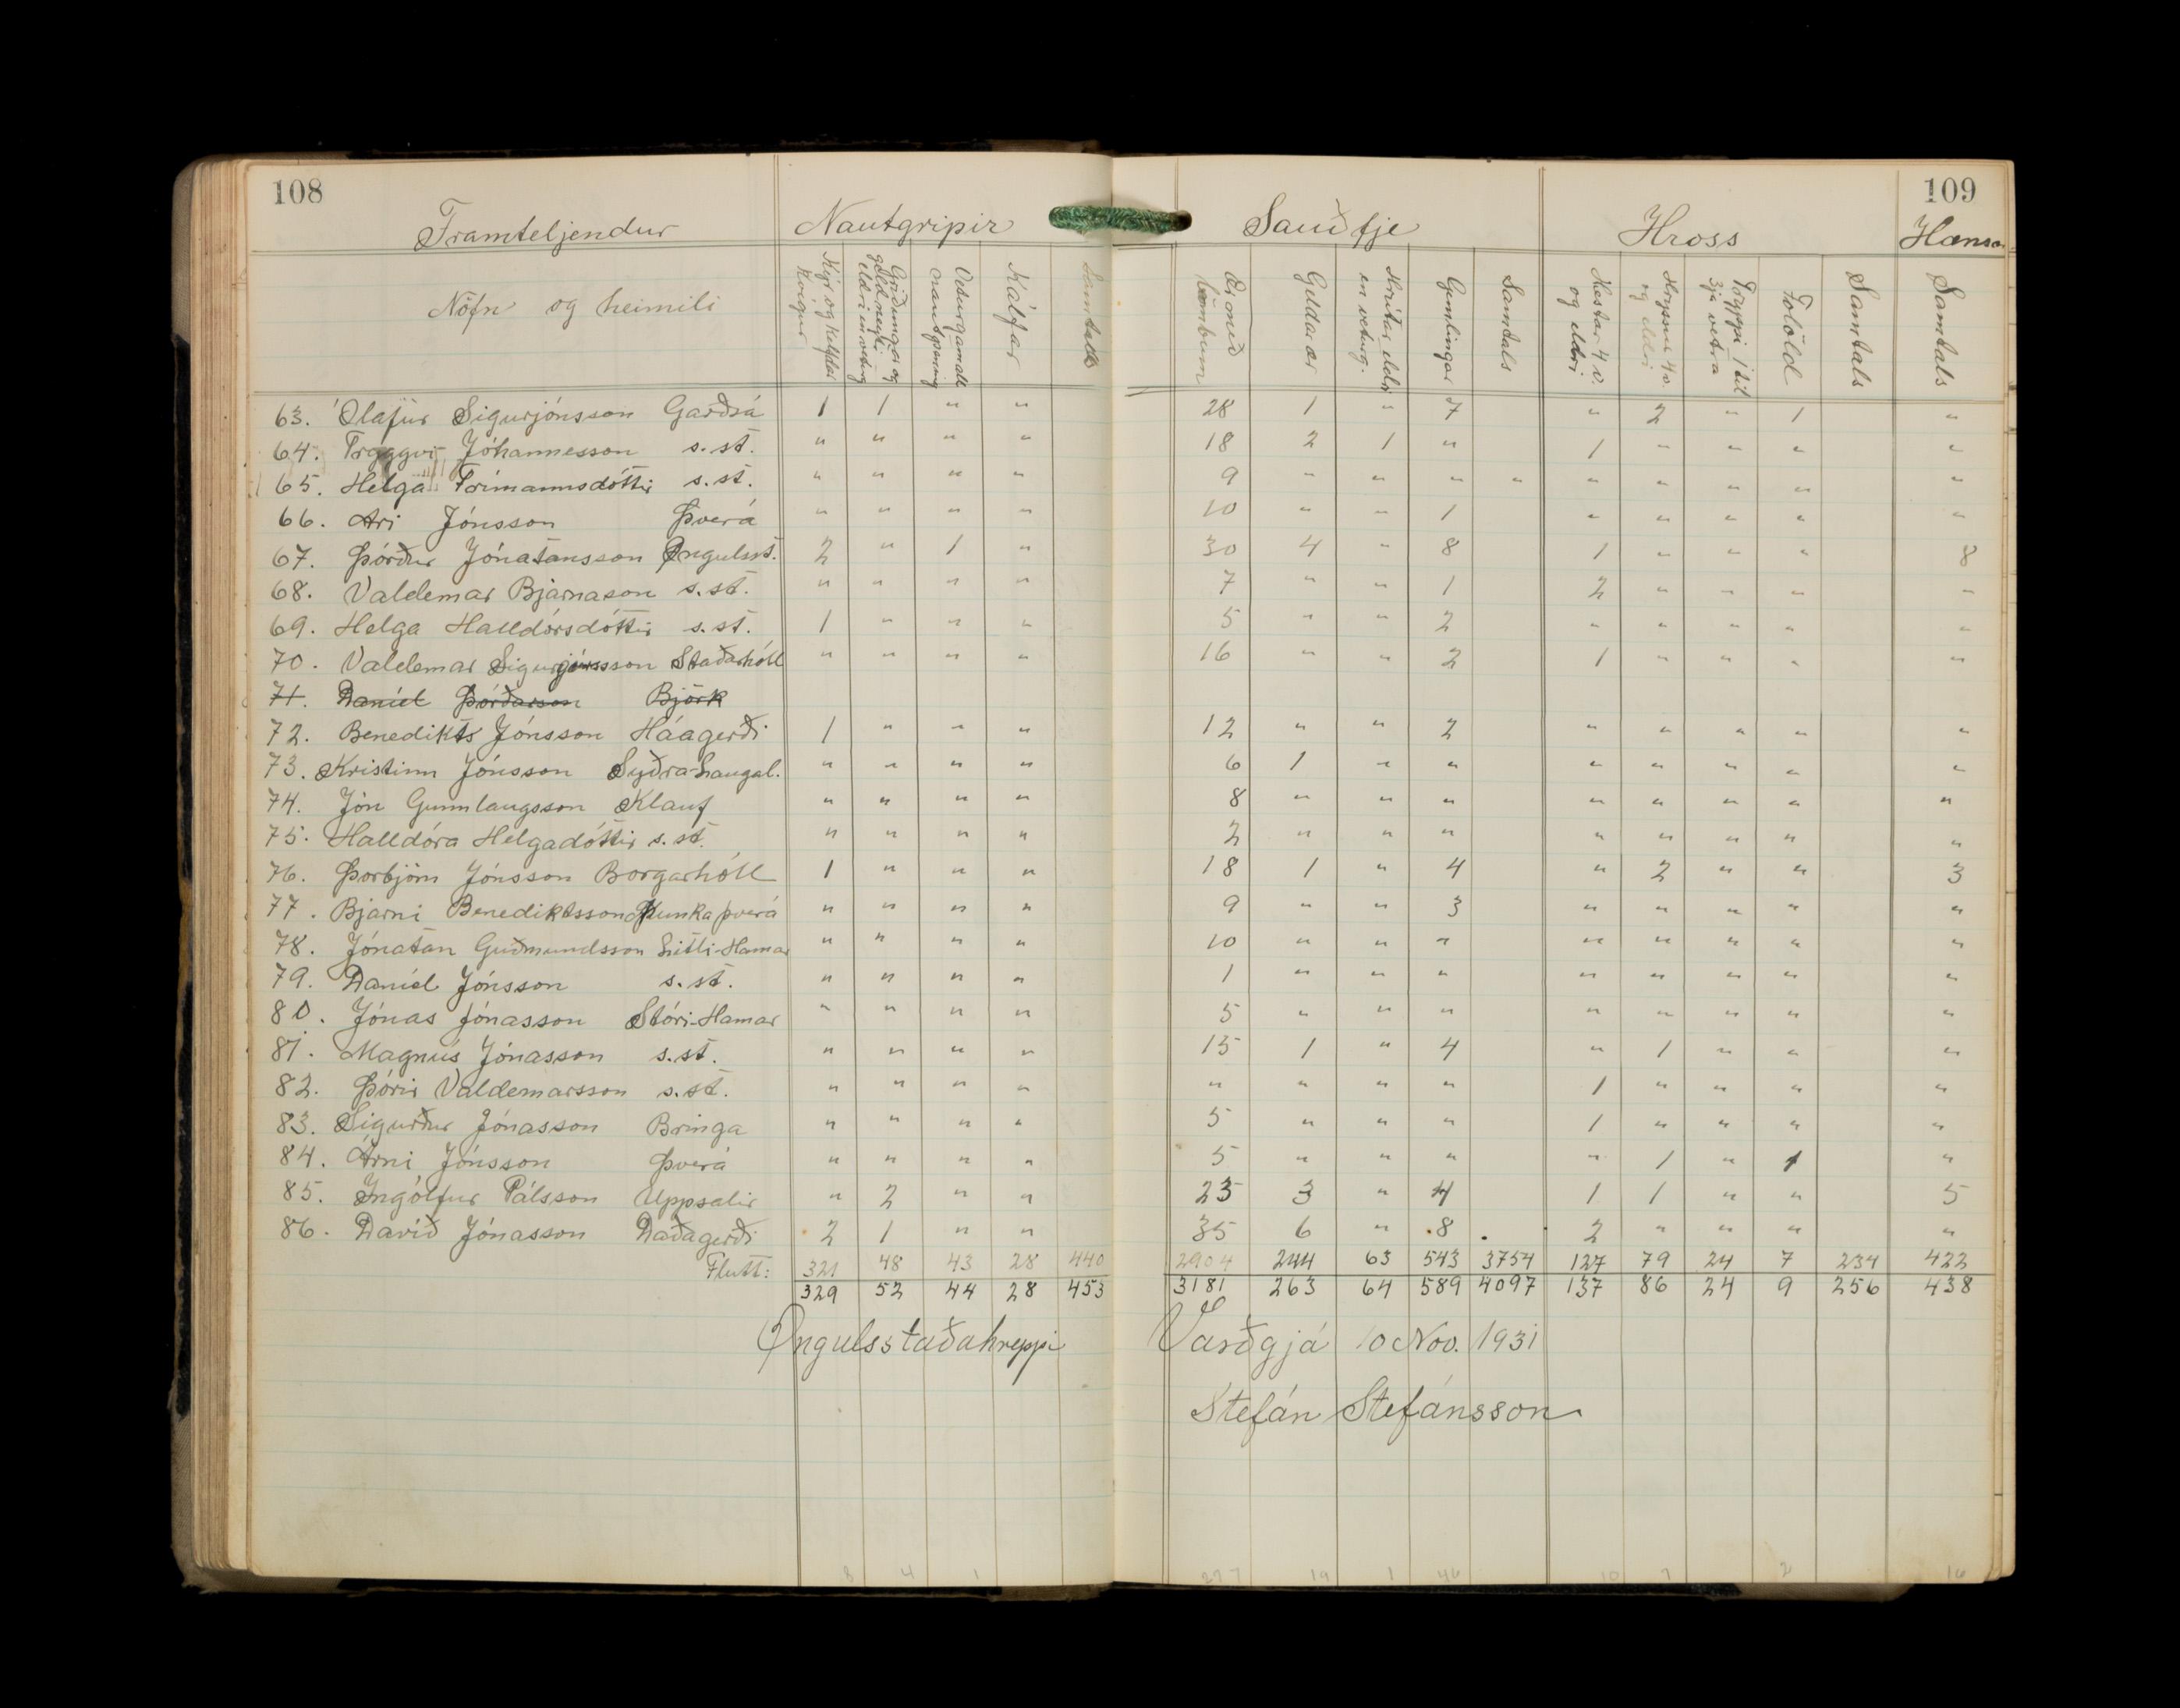 108
109
Framteljendur Nautgripir Sauðfje Hross Hænsn
Nöfn og heimili Kýr og kelfdar kvígur Griðungar og geldneyti eldri en veturg Veturgamall nautpening Kálfar Samtals Ær með lömbum Geldar ær Hrútar eldri en veturg. Gemlingar Samtals Hestar 4 v. og eldri Hryssur 4 v. og eldri Tryppi 1 til 3ja vetra Folöld Samtals Samtals
63. Ólafur Sigurjónsson Garðsá 1 1 " " 28 1 " 7 " 2 " 1 "
64. Tryggvi Jóhannesson s.st. " " " " 18 2 1 " 1 " " " "
65. Helga Frímannsdóttir s.st. " " " " 9 " " " " " " " " "
66. Ari Jónsson Þverá " " " " 10 " " 1 " " " " "
67. Þórður Jónatansson Öngulsst. 2 " 1 " 30 4 " 8 1 " " " 8
68. Valdemar Bjarnason s.st. " " " " 7 " " 1 2 " " " "
69. Helga Halldórsdóttir s.st. 1 " " " 5 " " 2 " " " " "
70. Valdemar Sigurjónsson Staðarhóll " " " " 16 " " 2 1 " " " "
71. Daníel Þórðarson Björk
72. Benedikts Jónsson Háagerði 1 " " " 12 " " 2 " " " " "
73. Kristinn Jónsson Syðra-Laugal. " " " " 6 1 " " " " " " "
74. Jón Gunnlaugsson Klauf " " " " 8 " " " " " " " "
75. Halldóra Helgadóttir s.st. " " " " 2 " " " " " " " "
76. Þorbjörn Jónsson Borgarhóll 1 " " " 18 1 " 4 " 2 " " 3
77. Bjarni Benediktsson Munkaþverá " " " " 9 " " 3 " " " " "
78. Jónatan Guðmundsson Litli-Hamar " " " " 10 " " " " " " " "
79. Daníel Jónsson s.st. " " " " 1 " " " " " " " "
80. Jónas Jónasson Stóri-Hamar " " " " 5 " " " " " " " "
81. Magnús Jónasson s.st. " " " " 15 1 " 4 " 1 " " "
82. Þórir Valdemarsson s.st. " " " " " " " " 1 " " " "
83. Sigurður Jónasson Bringa " " " " 5 " " " 1 " " " "
84. Árni Jónsson Þverá " " " " 5 " " " " 1 " 1 "
85. Ingólfur Pálsson Uppsalir " 2 " " 23 3 " 4 1 1 " " 5
86. Davíð Jónasson Daðagerði 2 1 " " 35 6 " 8 2 " " " "
Flutt: 321 48 43 28 440 2904 244 63 543 3754 127 79 24 7 234 422
329 52 44 28 453 3181 263 64 589 4097 137 86 24 9 256 438
Öngulsstaðahreppi Varðgjá 10 Nov. 1931
Stefán Stefánsson
8 4 1 277 19 1 46 10 7 2 16